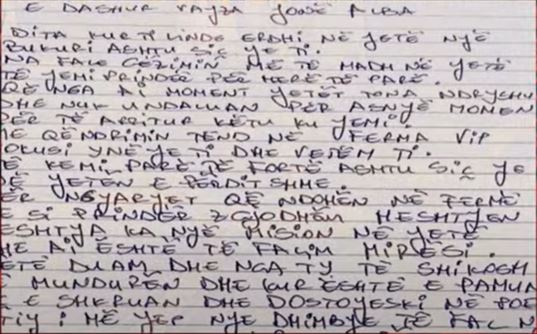 E DASHUR VAJZA JONË ALBA
DITA KUR TI LINDE ERDHI NË JETË NJË
BUKURI ASHTU SIÇ JE TI.
NA FALE GËZIMIN MË TË MADH NË JETË
TË JEMI PRINDËR PËR HERË TË PARË.
QË NGA AI MOMENT JETËT TONA NDRYSHU
DHE NUK U NDALUAN PËR ASNJË MOMEN
PËR TË ARRITUR KËTU KU JEMI.
ME QËNDRIMIN TËND NË FERMA VIP
OKUSI YNË JE TI DHE VETËM TI.
E KEMI PARË TË FORTË ASHTU SIÇ JE
Ë JETËN E PËRDITSHME.
ËR NGJARJET QË NDOHËN NË FERMË
E SI PRINDËR ZGJODHËM HESHTJEN
ESHTJA KA NJË MISION NË JETË
HE AI ËSHTË TË FALIM MIRËSI.
ETË DUAM DHE NGA TY TË SHIKOSH
MUNDURËN DHE KUR ËSHTË E PAMUN
E E SHKRUAN DHE DOSTOJESKI NË POE
TIJ: MË JEP NJË DHIMBJE TË FAL N